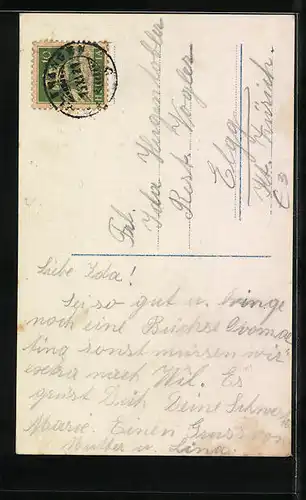 Frl.
Ida
Rest. Vogler
Elgg
Kt. Zürich.
Liebe Ida!
Sei so gut u. bringe
noch eine Büchse Ovomal
ting sonst müssen wir
extra nach Wil. Es
grüst Dich Deine Schwest
Marie. Einen Gruss von
Mutter u. Lina.